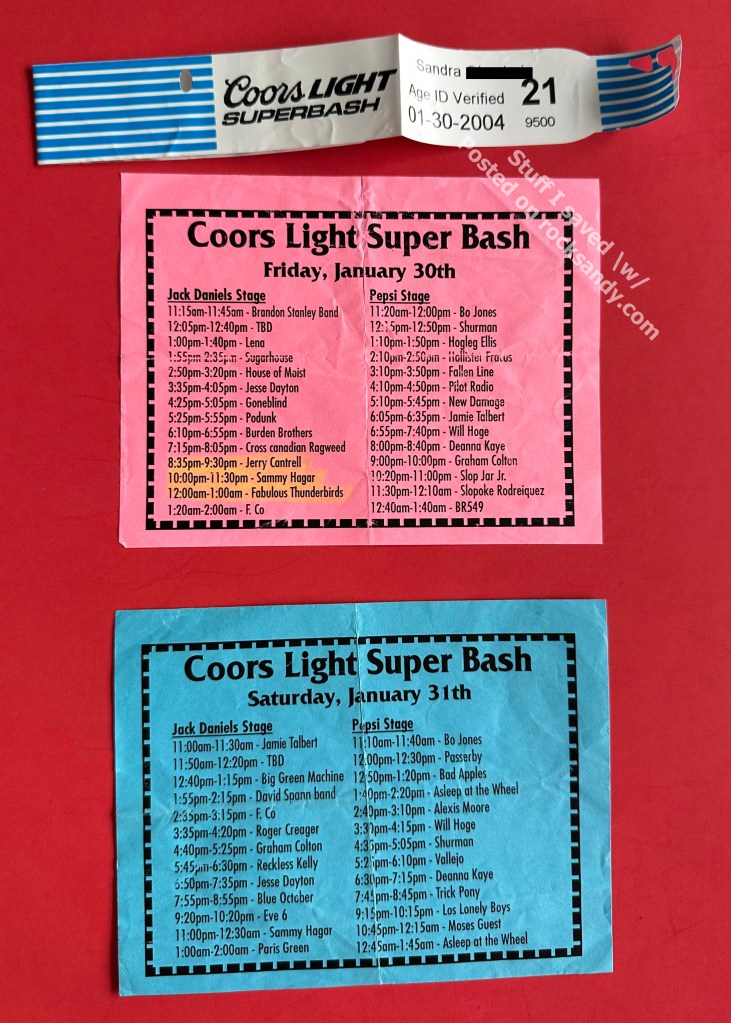 Coors LIGHT
SUPERBASH
Sandra
Age ID Verified 21
01-30-2004 9500
Stuff I saved \w/
Posted on rocksandy.com
Coors Light Super Bash
Friday, January 30th
Jack Daniels Stage
11:15am-11:45am - Brandon Stanley Band
12:05pm-12:40pm - TBD
1:00pm-1:40pm - Lena
1:55pm-2:35pm - Sugarhouse
2:50pm-3:20pm - House of Moist
3:35pm-4:05pm - Jesse Dayton
4:25pm-5:05pm - Goneblind
5:25pm-5:55pm - Podunk
6:10pm-6:55pm - Burden Brothers
7:15pm-8:05pm - Cross canadian Ragweed
8:35pm-9:30pm - Jerry Cantrell
10:00pm-11:30pm - Sammy Hagar
12:00am-1:00am - Fabulous Thunderbirds
1:20am-2:00am - F. Co
Pepsi Stage
11:20am-12:00pm - Bo Jones
12:15pm-12:50pm - Shurman
1:10pm-1:50pm - Hogleg Ellis
2:10pm-2:50pm - Hollister Fracus
3:10pm-3:50pm - Fallen Line
4:10pm-4:50pm - Pilot Radio
5:10pm-5:45pm - New Damage
6:05pm-6:35pm - Jamie Talbert
6:55pm-7:40pm - Will Hoge
8:00pm-8:40pm - Deanna Kaye
9:00pm-10:00pm - Graham Colton
10:20pm-11:00pm - Slop Jar Jr.
11:30pm-12:10am - Slopoke Rodreiquez
12:40am-1:40am - BR549
Coors Light Super Bash
Saturday, January 31th
Jack Daniels Stage
11:00am-11:30am - Jamie Talbert
11:50am-12:20pm - TBD
12:40pm-1:15pm - Big Green Machine
1:55pm-2:15pm - David Spann band
2:35pm-3:15pm - F. Co
3:35pm-4:20pm - Roger Creager
4:40pm-5:25pm - Graham Colton
5:45pm-6:30pm - Reckless Kelly
6:50pm-7:35pm - Jesse Dayton
7:55pm-8:55pm - Blue October
9:20pm-10:20pm - Eve 6
11:00pm-12:30am - Sammy Hagar
1:00am-2:00am - Paris Green
Pepsi Stage
11:10am-11:40am - Bo Jones
12:00pm-12:30pm - Passerby
12:50pm-1:20pm - Bad Apples
1:40pm-2:20pm - Asleep at the Wheel
2:40pm-3:10pm - Alexis Moore
3:30pm-4:15pm - Will Hoge
4:35pm-5:05pm - Shurman
5:25pm-6:10pm - Vallejo
6:30pm-7:15pm - Deanna Kaye
7:45pm-8:45pm - Trick Pony
9:15pm-10:15pm - Los Lonely Boys
10:45pm-12:15am - Moses Guest
12:45am-1:45am - Asleep at the Wheel